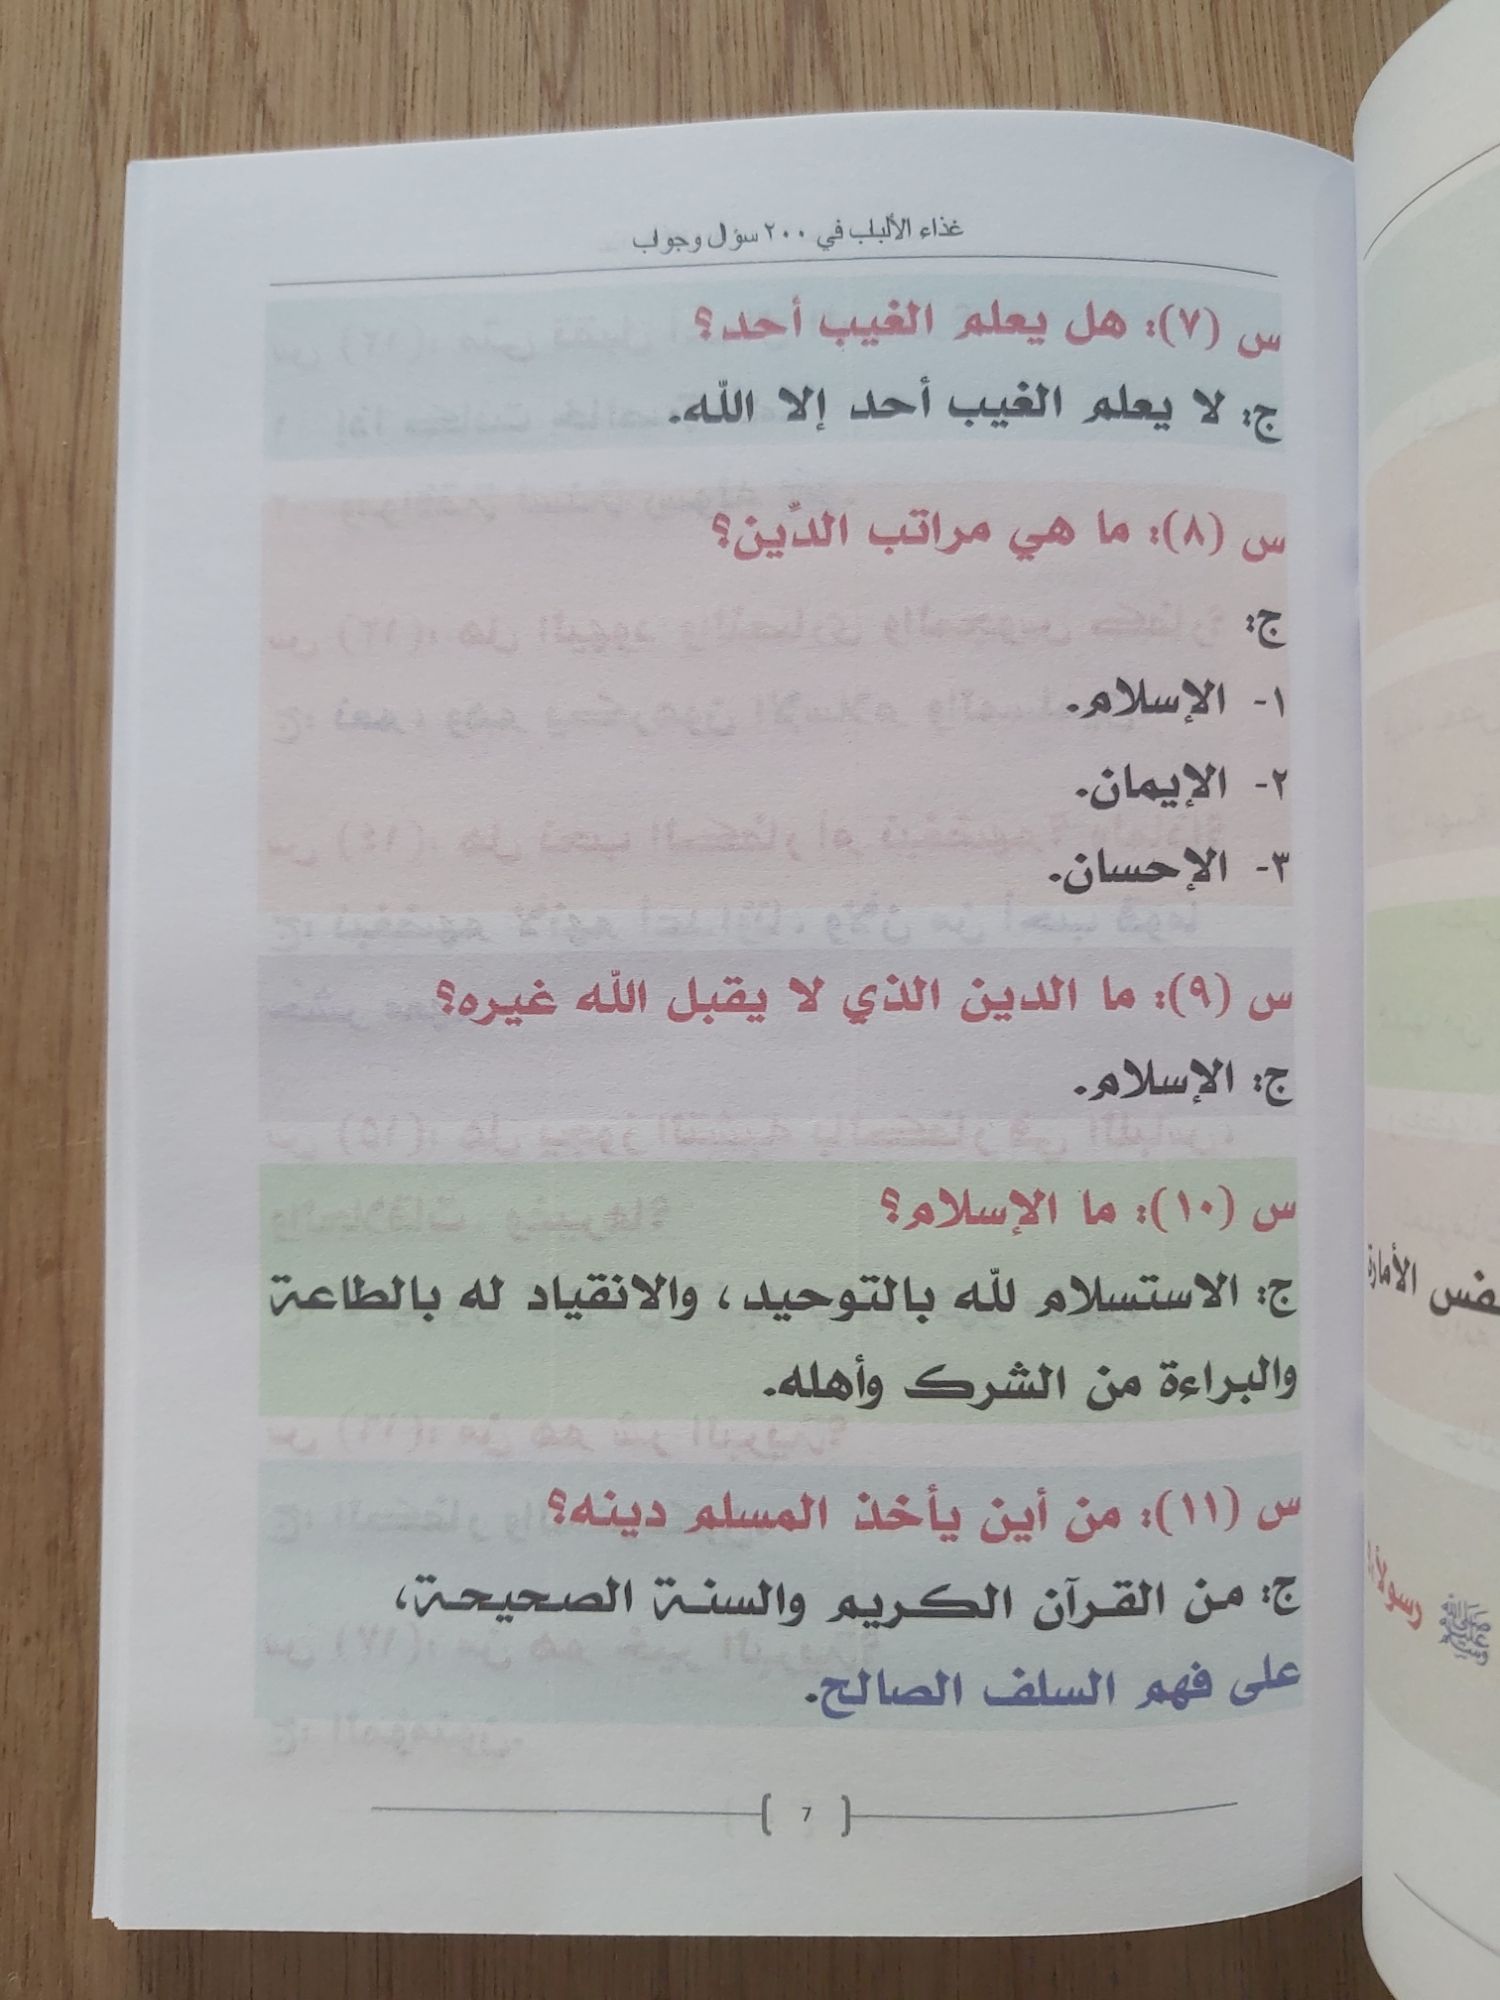 غذاء الألباب في ٢٠٠ سؤال وجواب
س (٧): هل يعلم الغيب أحد؟
ج: لا يعلم الغيب أحد إلا الله.
س (٨): ما هي مراتب الدِّين؟
ج:
١- الإسلام.
٢- الإيمان.
٣- الإحسان.
س (٩): ما الدين الذي لا يقبل الله غيره؟
ج: الإسلام.
س (١٠): ما الإسلام؟
ج: الاستسلام لله بالتوحيد، والانقياد له بالطاعة
والبراءة من الشرك وأهله.
س (١١): من أين يأخذ المسلم دينه؟
ج: من القرآن الكريم والسنة الصحيحة،
على فهم السلف الصالح.
7
الأمارة